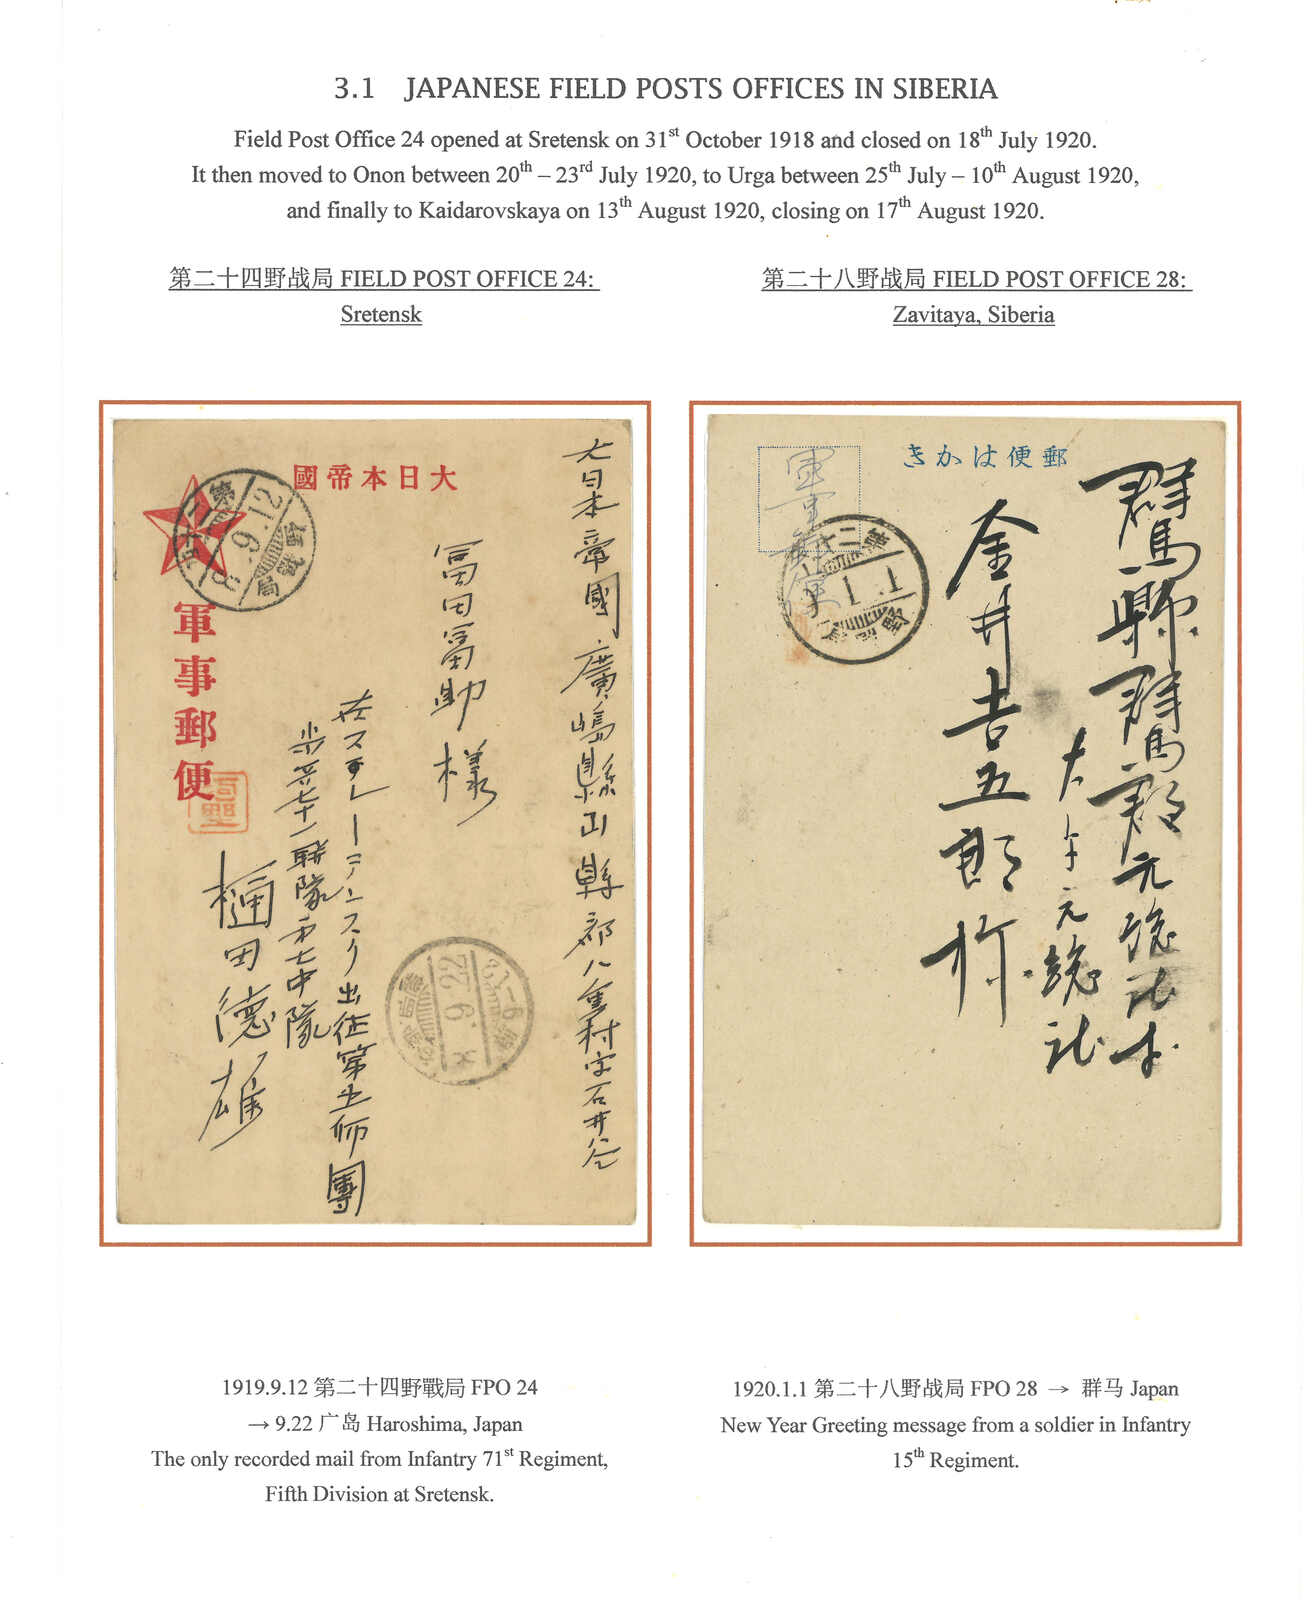 3.1 JAPANESE FIELD POSTS OFFICES IN SIBERIA
Field Post Office 24 opened at Sretensk on 31st October 1918 and closed on 18th July 1920.
It then moved to Onon between 20th – 23rd July 1920, to Urga between 25th July – 10th August 1920,
and finally to Kaidarovskaya on 13th August 1920, closing on 17th August 1920.
第二十四野战局 FIELD POST OFFICE 24:
Sretensk
第二十八野战局 FIELD POST OFFICE 28:
Zavitaya, Siberia
大日本帝國
軍事郵便
8.9.12
野戰局
大日本帝國廣嶋縣山縣郡八重村字石井谷
冨田冨助様
出征第五師團
歩兵七十一聯隊第七中隊
樋田德雄
8.9.22
郵便はかき
軍事郵便
1.1
群馬縣群馬郡元総社村
大字元総社
金井吉五郎様
1919.9.12 第二十四野戰局 FPO 24
→ 9.22 广岛 Haroshima, Japan
The only recorded mail from Infantry 71st Regiment,
Fifth Division at Sretensk.
1920.1.1 第二十八野战局 FPO 28 → 群马 Japan
New Year Greeting message from a soldier in Infantry
15th Regiment.